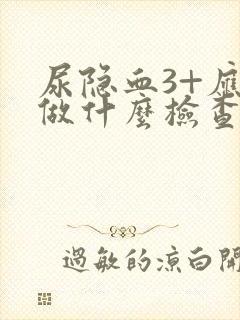 尿隐血3+应
做什麼檢查
過敏的涼白開